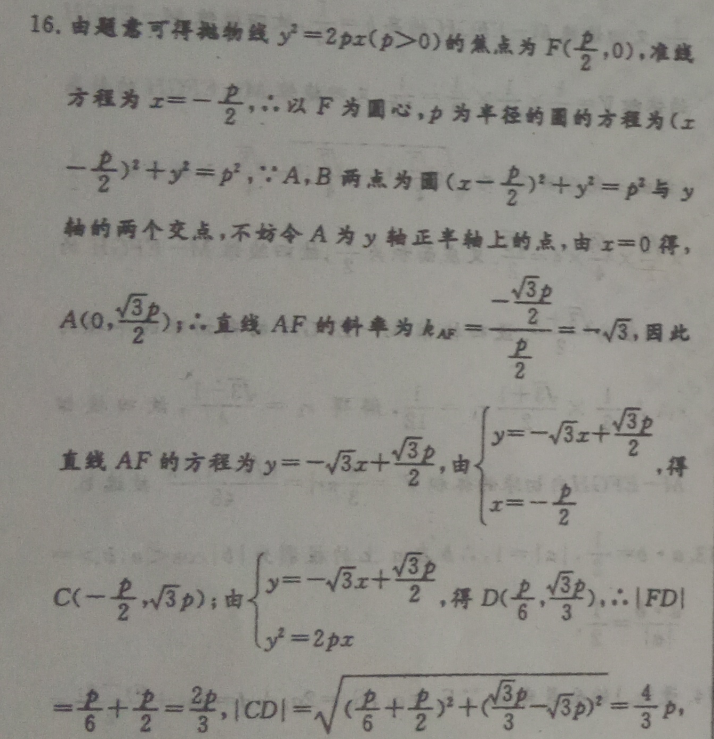 16. 由题意可得抛物线 y²=2px(p>0)的焦点为 F(p/2,0),准线
方程为 x=-p/2,∴以 F 为圆心,p 为半径的圆的方程为(x
-p/2)²+y²=p²,∵A,B 两点为圆(x-p/2)²+y²=p²与 y
轴的两个交点,不妨令 A 为 y 轴正半轴上的点,由 x=0 得,
A(0,√3p/2);∴直线 AF 的斜率为 k_AF=(-√3p/2)/(p/2)=-√3,因此
直线 AF 的方程为 y=-√3x+√3p/2,由{y=-√3x+√3p/2, x=-p/2,得
C(-p/2,√3p);由{y=-√3x+√3p/2, y²=2px,得 D(p/6,√3p/3),∴|FD|
=p/6+p/2=2p/3,|CD|=√((p/6+p/2)²+(√3p/3-√3p)²)=4/3p,